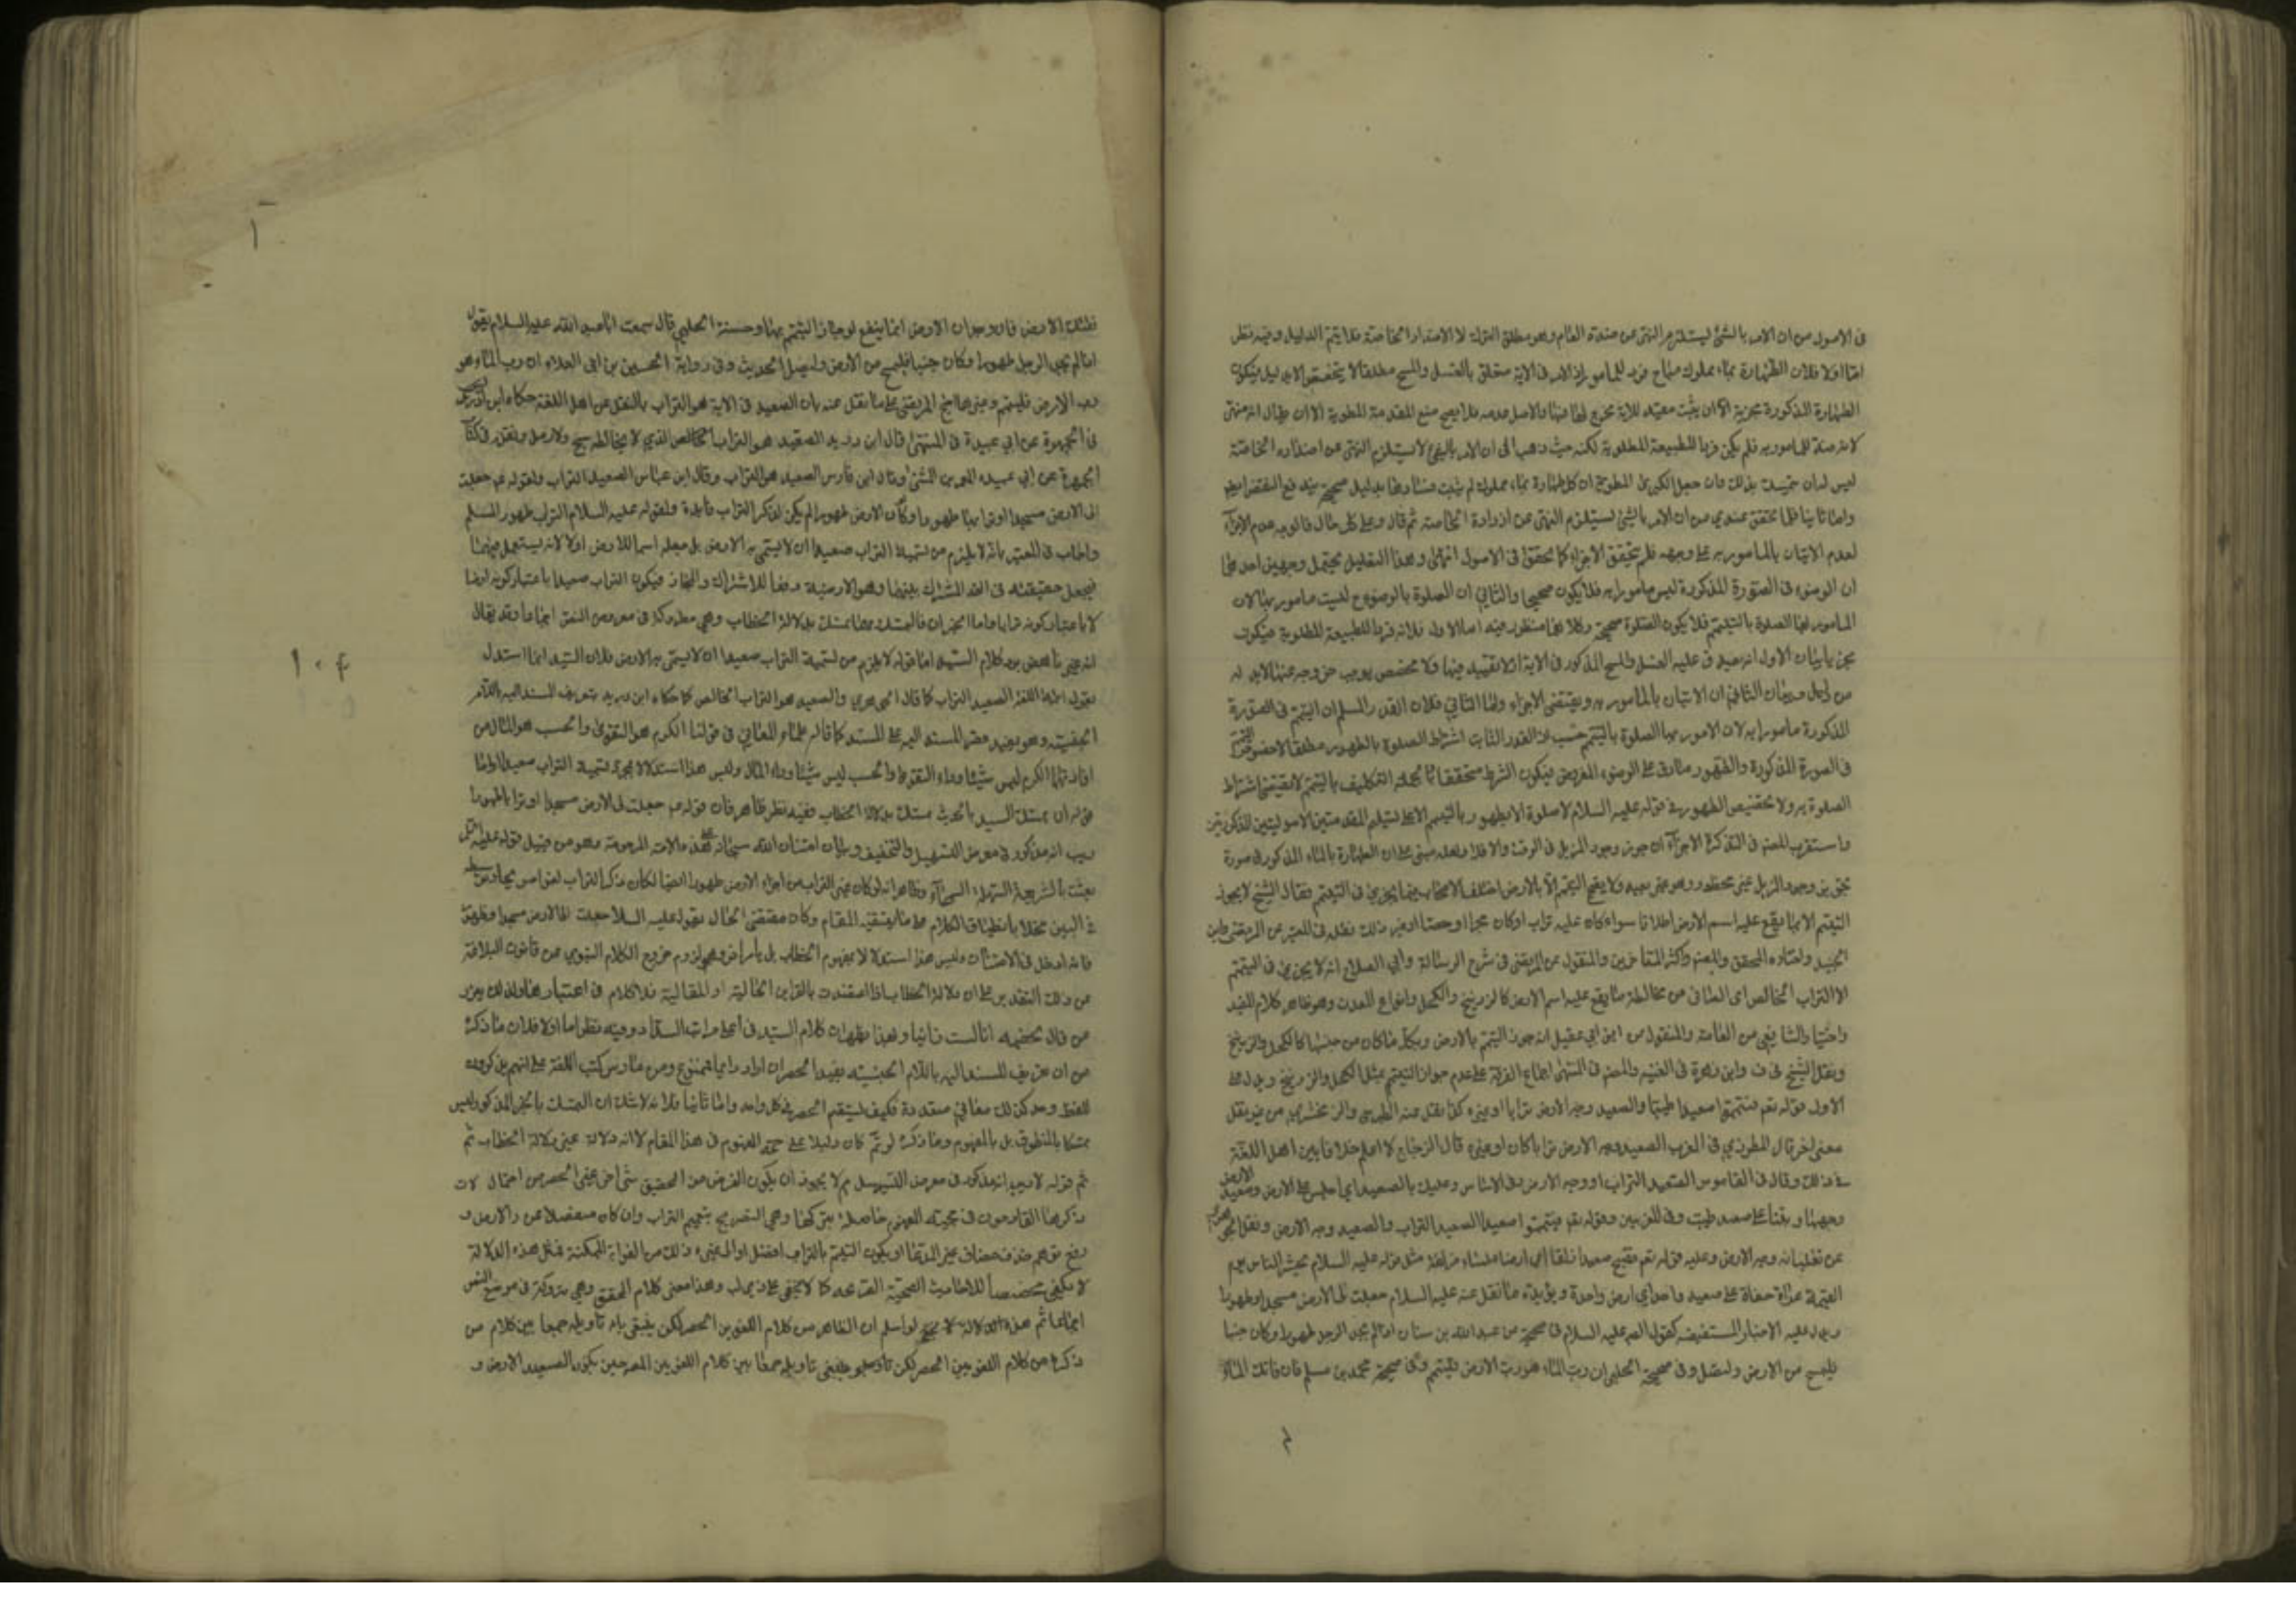 في الاصول من ان الامر بالشئ يستلزم النهى عن ضده العام وهو مطلق الترك لا الاضداد الخاصة فلا يتم الدليل وفيه نظر
اما اولا فلان الطهارة بماء مملوك مباح فرد للمامور اذ الامر في الاية متعلق بالغسل والمسح مطلقا لا بدليل فيكون
الطهارة المذكورة مجزية الا ان يثبت مقيد للاية مخرج لها عنها والاصل عدمه فلا يصح منع المقدمة المطوية الا ان يقال انه منهى
لانه ضد للمامور به فلم يكن فردا للطبيعة المطلوبة لكنه حيث ذهب الى ان الامر بالشئ لا يستلزم النهى عن اضداده الخاصة
ليس له ان يتمسك بذلك فان جعل الكبرى المطوية ان كل طهارة بماء مملوك لم يثبت بدليل صحيح
واما ثانيا فلما تحقق عندي من ان الامر بالشئ يستلزم النهى عن الخاصة ثم قال وعلى كل حال فالوجه عدم الاجزاء
لعدم الاتيان بالمامور به على وجهه فلم يتحقق الاجزاء كما تحقق في الاصول انتهى وهذا التعليل يحتمل وجهين احدهما
ان الوضوء في الصورة المذكورة ليس مامورا به فلا يكون صحيحا والثاني ان الصلوة بالوضوء ليست مامور بها لان
المامور بها الصلوة بالتيمم فلا يكون الصلوة صحيحة وكلاهما منظور فيه اما الاول فلانه فرد للطبيعة المطلوبة فيكون
مجزيا بيان الاول انه يصدق عليه الغسل والمسح المذكور في الاية اذ لا تقييد فيها ولا مخصص يوجب خروجه عنها لابد له
من دليل وبيان الثاني ان الاتيان بالمامور به يقتضى الاجزاء واما الثاني فلان القدر المسلم ان التيمم في الصورة
المذكورة مامور به لان المامور بها الصلوة بالتيمم حسب اذ القدر الثابت اشتراط الصلوة بالطهور مطلقا لا خصوص التيمم
في الصورة المذكورة والطهور صادق على الوضوء المفروض فيكون الشرط متحققا التكليف بالتيمم لا يقتضى اشتراط
الصلوة به ولا تخصيص الطهور في قوله عليه السلام لا صلوة الا بطهور بالتيمم الا على تسليم المقدمتين الاصوليتين المذكورتين
واستقرب المصنف في التذكرة الاجزاء ان جوز وجود المزيل في الوقت والا فلا ولعله مبنى على ان الطهارة بالماء المذكور في صورة
تجويز وجود المزيل غير محظور وهو غير بعيد ولا يصح التيمم الا بالارض اختلف الاصحاب فيما يجزى في التيمم فقال الشيخ لا يجوز
التيمم الا بما يقع عليه اسم الارض اطلاقا سواء كان عليه تراب او كان حجرا او حصا او غير ذلك نقله في المعتبر عن المرتضى وابن
الجنيد واختاره المحقق والمصنف واكثر المتاخرين والمنقول عن المرتضى في شرح الرسالة وابي الصلاح انه لا يجزى في التيمم
الا التراب الخالص اى الصافي من مخالطة ما لا يقع عليه اسم الارض كالزرنيخ والكحل وانواع المعدن وهو ظاهر كلام المفيد
والشافعي من العامة والمنقول من ابن ابي عقيل انه جوز التيمم بالارض وبكل ما كان من جنسها كالكحل والزرنيخ
ونقل الشيخ في ف وابن زهرة في الغنيه والمصنف في المنتهى اجماع الفرقة على عدم جواز التيمم بمثل الكحل والزرنيخ ويدل على
الاول قوله تعم فتيمموا صعيدا طيبا والصعيد وجه الارض ترابا او غيره كما نقل عنه الطبرسي والزمخشري من غير نقل
معنى اخر قال المطرزي في المغرب الصعيد وجه الارض ترابا كان او غيره قال الزجاج لا اعلم خلافا بين اهل اللغة
في ذلك وقال في القاموس الصعيد التراب او وجه الارض وفي الاساس وعليك بالصعيد اي اجلس على الارض وصعيد الارض
وجهها وفي الغريبين وقوله تعم فتيمموا صعيدا الصعيد التراب والصعيد وجه الارض ونقل
عن تغلب انه وجه الارض وعليه قوله تعم فتصبح صعيدا زلقا اي ارضا ملساء مزلقة مثل قوله عليه السلام يحشر الناس يوم
القيمة عراة حفاة على صعيد واحد اي ارض واحدة ويؤيده ما نقل عنه عليه السلام جعلت لي الارض مسجدا وطهورا
ويدل عليه الاخبار المستفيضه كقول الصم عليه السلام في صحيحة عبد الله بن سنان اذا لم يجد الرجل طهورا وكان جنبا
فليمسح من الارض وليصل وفي صحيحة الحلبي ان رب الماء هو رب الارض فليتيمم وفي صحيحة محمد بن مسلم فان فاتك الماء
٢
١
١٠٤
فلم تفتك الارض فان وجدان الارض انما ينفع لو جاز التيمم بها وحسنة الحلبي قال سمعت ابا عبد الله عليه السلام يقول
اذا لم يجد الرجل طهورا وكان جنبا فليمسح من الارض وليصل الحديث وفي رواية الحسين بن ابي العلاء ان رب الماء هو
رب الارض فليتيمم وغيرها احتج المرتضى على ما نقل عنه بان الصعيد في الاية هو التراب بالنقل عن اهل اللغة حكاه ابن دريد
في الجمهرة عن ابي عبيدة في المنتهى قال ابن دريد الصعيد هو التراب الخالص الذي لا يخالطه سبخ ولا رمل ونقل في كتاب
الجمهرة عن ابي عبيده المعمر بن المثنى وقال ابن فارس الصعيد هو التراب وقال ابن عباس الصعيد التراب ولقوله عم جعلت
لى الارض مسجدا وترابها طهورا ولو كان الارض طهورا لم يكن لذكر التراب فائدة ولقوله عليه السلام التراب طهور المسلم
واجاب في المعتبر بانه لا يلزم من تسمية التراب صعيدا ان لا يسمى به الارض بل جعله اسما للارض اولا لانه يستعمل فيهما
فيجعل حقيقته في القدر المشترك بينهما وهو الارضية دفعا للاشتراك والمجاز فيكون التراب صعيدا باعتبار كونه ارضا
لا باعتبار كونه ترابا واما الخبران فالتمسك بهما تمسك بدلالة الخطاب وهي متروكة في معرض النص اجماعا وقد يقال
انه غير ناهض برد كلام السيد اما قوله لا يلزم من تسمية التراب صعيدا ان لا يسمى به الارض فلان السيد انما استدل
بقول اهل اللغة الصعيد التراب كما قال الجوهري والصعيد هو التراب الخالص كما حكاه ابن دريد بتعريف المسند اليه باللام
الجنسية وهو يفيد حصر المسند اليه على المسند كما قاله علماء المعاني في قولنا الكرم هو التقوى والحسب هو المال من
ان الكرم ليس شيئا وراء التقوى والحسب ليس شيئا وراء المال وليس هذا استدلالا بمجرد تسمية التراب صعيدا واما
قوله ان تمسك السيد بالحديث تمسك بدلالة الخطاب ففيه نظر ظاهر فان قوله عم جعلت لى الارض مسجدا وترابها طهورا
ريب انه مذكور في معرض التسهيل والتخفيف وبيان امتنان الله سبحانه على هذه الامة المرحومة وهو من قبيل قوله عليه السلام
بعثت بالشريعة السهلة السمحاء وظاهر انه لو كان غير التراب من اجزاء الارض طهورا ايضا لكان ذكر التراب لغوا
في البين مخلا بانطباق الكلام على ما يقتضيه المقام وكان مقتضى الحال يقول عليه السلام جعلت لي الارض مسجدا وطهورا
فانه ادخل في الامتنان وليس هذا استدلالا بمفهوم الخطاب بل بامر اخر وهو لزوم خروج الكلام النبوي عن قانون البلاغة
من ذلك التقدير على ان دلالة الخطاب اذا اعتضدت بالقراين الحالية او المقالية فلا كلام في اعتبارها ولذلك يعزر
من قال لخصمه اما انا لست زانيا وبهذا يظهر ان كلام السيد في اعلى مراتب السداد وفيه نظر اما اولا فلان ما ذكره
من ان تعريف المسند اليه باللام الجنسيه يفيد الحصر ان اراد دايما فممنوع ومن مارس كتب اللغة علم انهم يذكرون
للفظ واحد كذلك معاني متعددة فكيف يستقيم الحصر في كل واحد واما ثانيا فلانه لا شك ان التمسك بالخبر المذكور ليس
تمسكا بالمنطوق بل بالمفهوم وما ذكره لو تم كان دليلا على حجية المفهوم في هذا المقام لا انه دلالة غير دلالة الخطاب ثم
ثم قوله لا ريب انه مذكور في معرض التسهيل لم لا يجوز ان يكون الغرض من التحقيق شئ اخر غير الحصر من احتمال لات
ذكرها القادحون في حجية المفهوم حاصلة بتركها وهي التصريح بتيمم التراب وان كان منفصلا من الارض و
رفع توهم حذف مضاف غير المدعا او يكون التيمم بالتراب افضل او الى غيره ذلك من الفوايد الممكنة فمثل هذه الدلالة
لا يكفى مخصصا للاحاديث الصحيحة كما لا يخفى وهذا معنى كلام المحقق وهي متروكة في موضع النص
اجماعا ثم لو سلم ان الظاهر من كلام اللغويين الحصر لكن ينبغى تاويله جمعا بين كلام من
ذكره من كلام اللغويين الحصر لكن ينبغى تاويله جمعا بين كلام اللغويين المصرحين بكون الصعيد الارض و